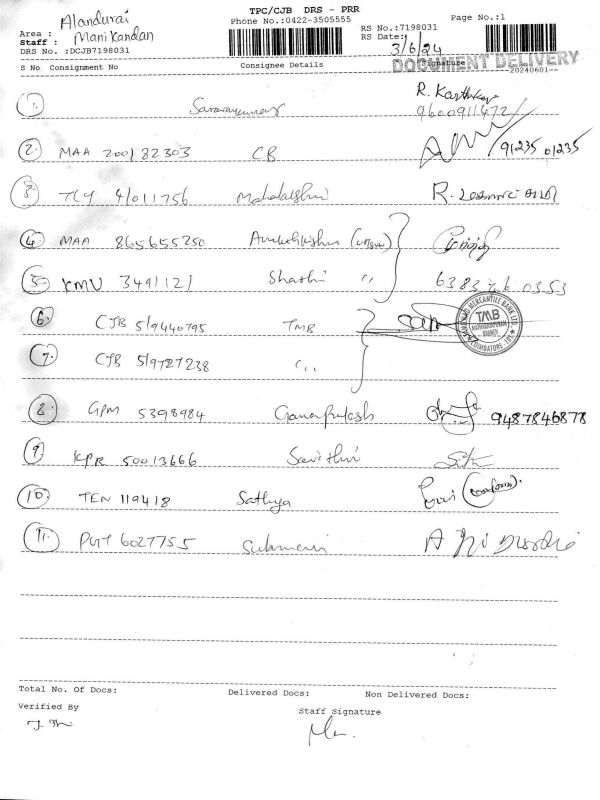 TPC/CJB DRS - PRR
Alandurai
Phone No.:0422-3505555
Page No.:1
Area :
RS No.:7198031
Staff : Manikandan
RS Date:
3/6/24
DRS No. :DCJB7198031
DOCUMENT DELIVERY
20240601--
S No Consignment No Consignee Details Signature
1. Saravanakumar R. Karthikar
9600911472
2 MAA 200182303 CB 91235 01235
3 TCY 4/011756 Mahalakshmi R.
4 MAA 865655250
5 KMU 3491121 Shashi ''
6 CJB 519440795 TMB
TMB
COIMBATORE
7 CJB 519727238 ''
8 GPM 5398984 Gnanaprakash 9487846878
9 KPR 50013666 Savithri
10 TEN 119418 Sathya
11. PUT 6027755
Total No. Of Docs: Delivered Docs: Non Delivered Docs:
Verified By
Staff Signature